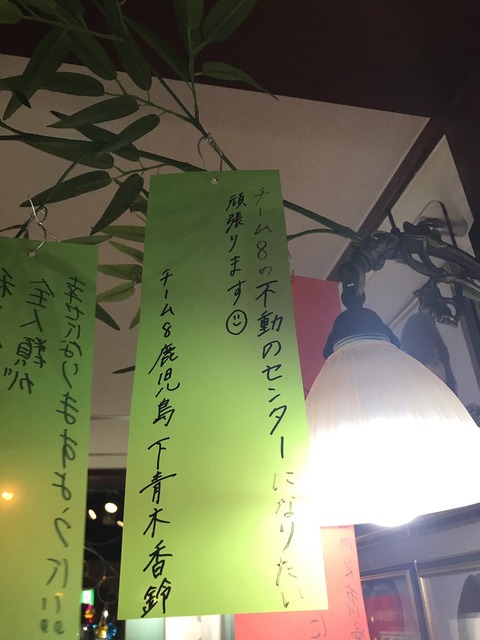 チーム8の不動のセンターになりたい
頑張ります☺
チーム8鹿児島 下青木香鈴
幸せになりますように!!!
全人類が